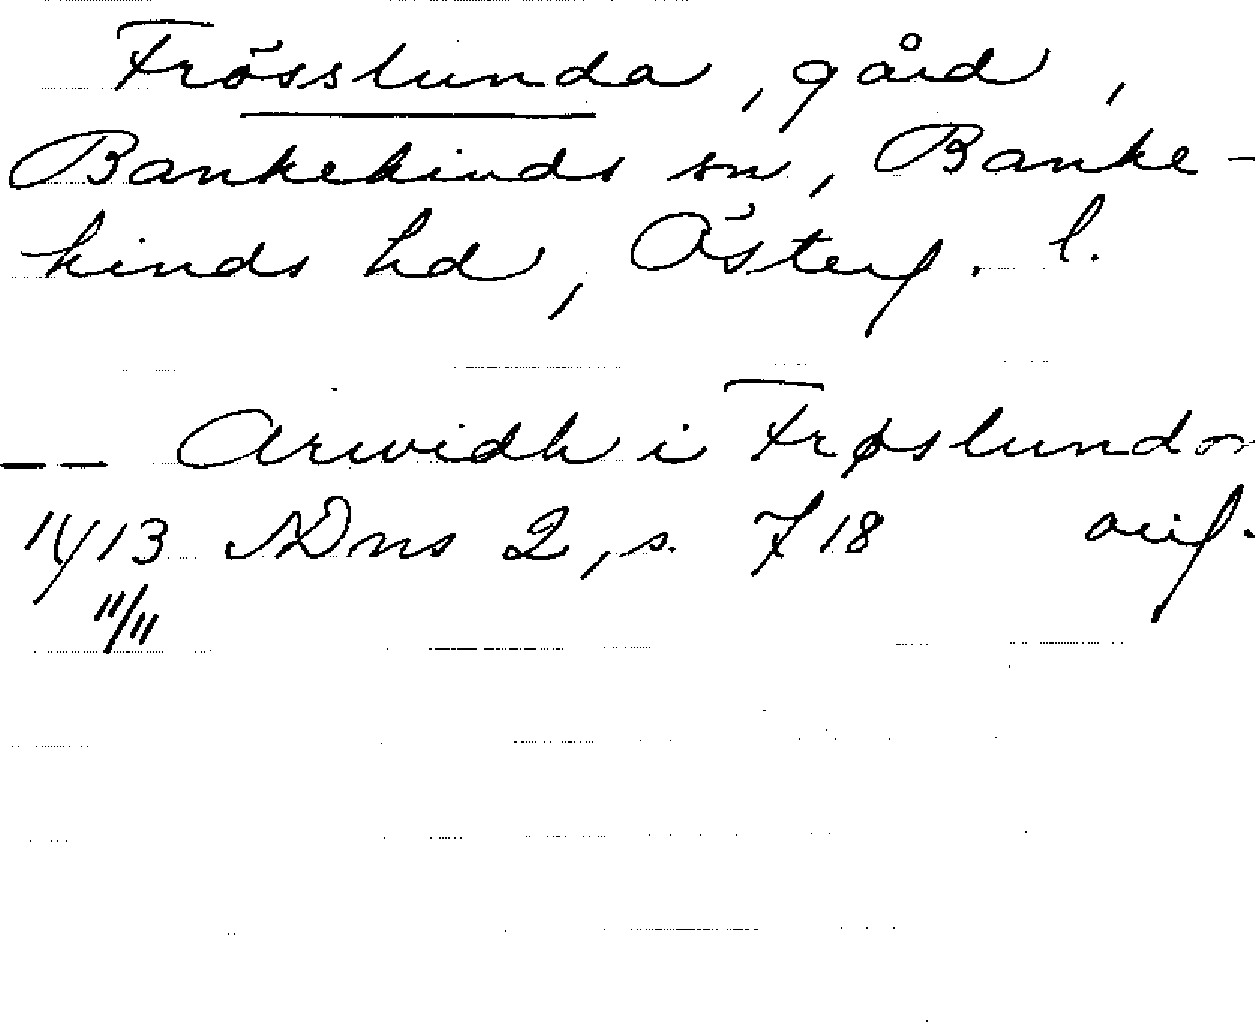 Frösslunda, gård,
Bankekinds sn, Banke-
kinds hd, Österg. l.
-- Arwidh i Frøslundom
1413 SDns 2, s. 718 orig.
11/11